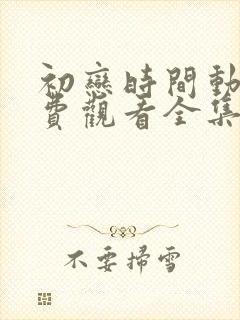 初戀時間動
費觀看全集
不要掃雪